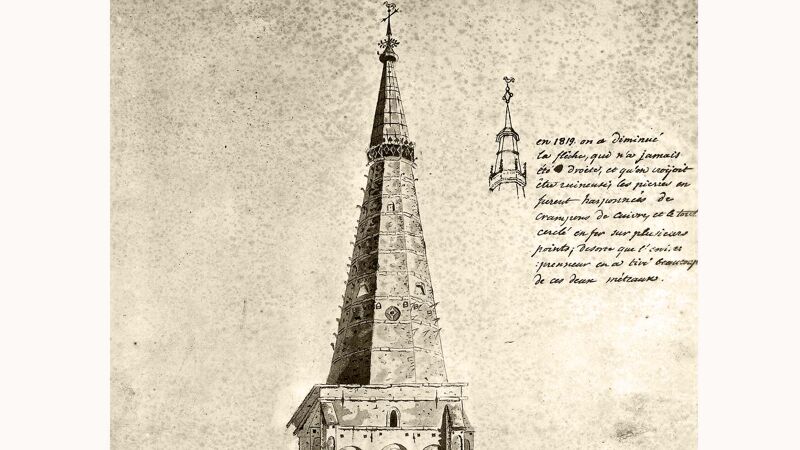 en 1819. on a diminué
la flèche, qui n'a jamais
été droite, et qu'on croijoit
être ruineuse; les pierres en
furent harponnées de
Crampons de Cuivre, et le tout
cerclé en fer sur plusieurs
points; desorte que l'entre
preneur en a tiré beaucoup
de ces deux métaux.